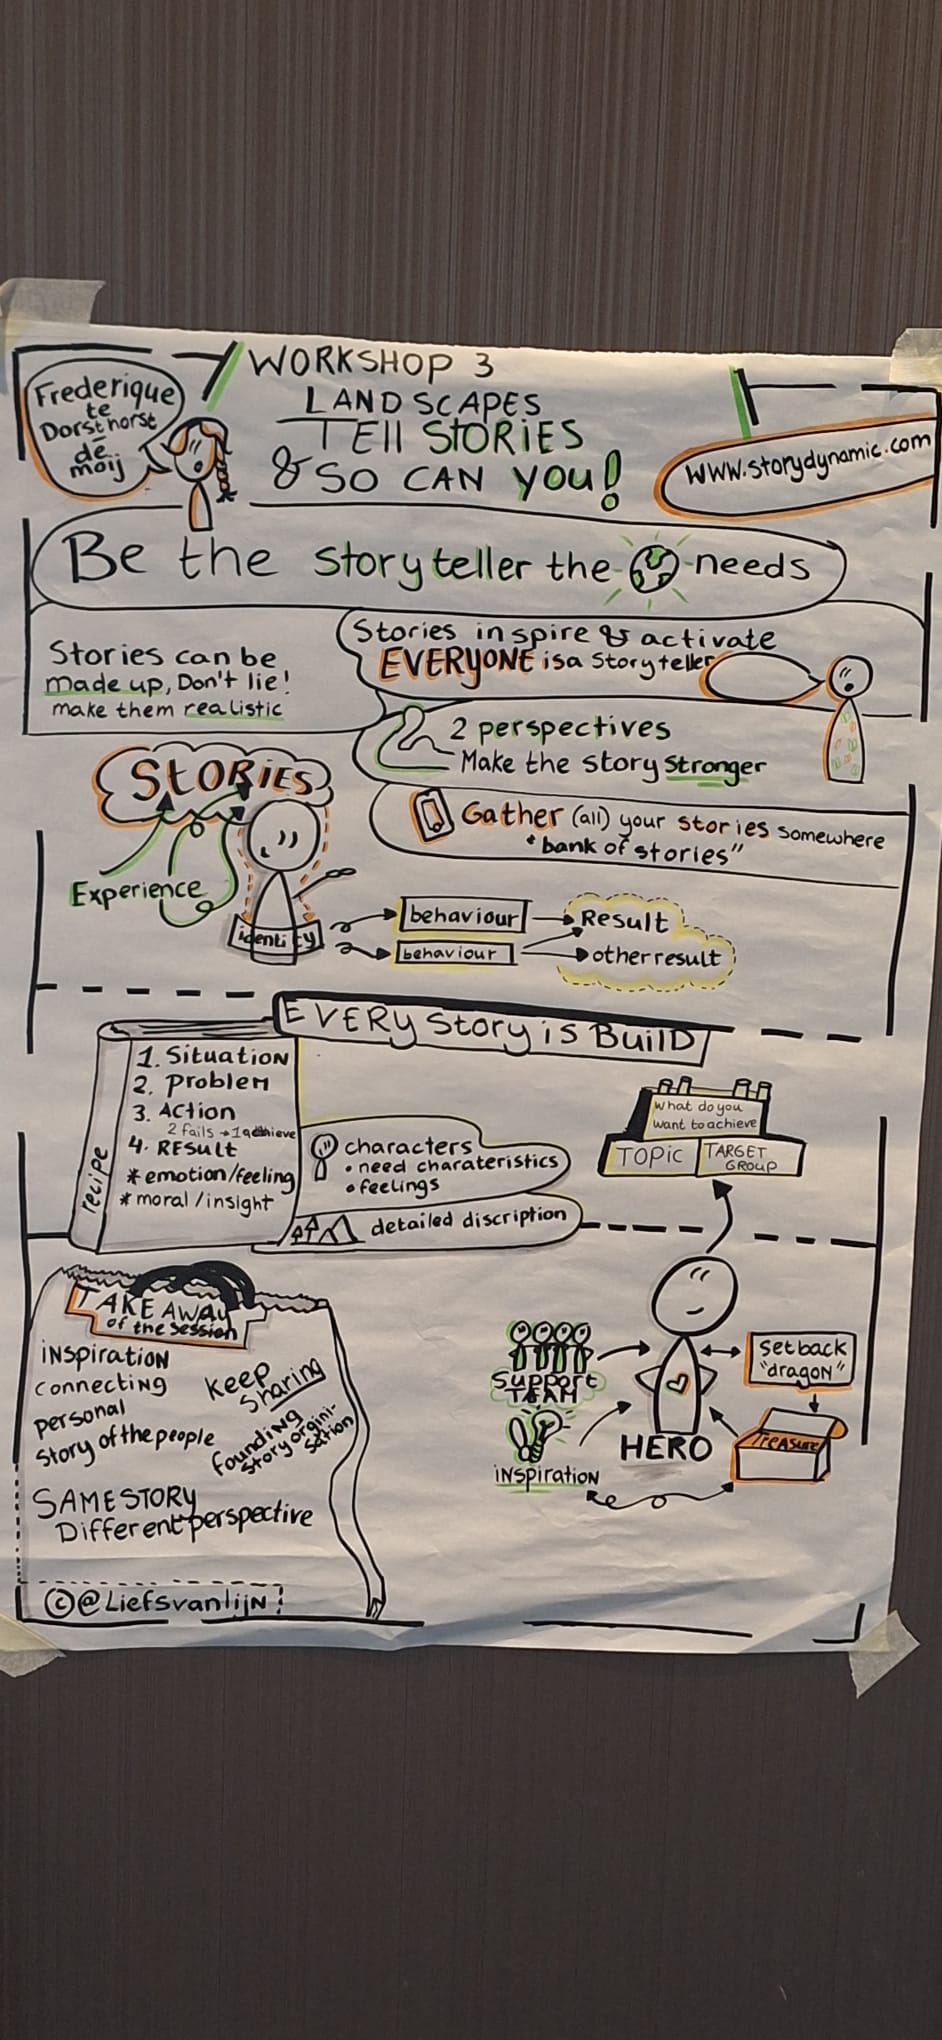 WORKSHOP 3
LANDSCAPES
TEll STORIES
& SO CAN YOU!
Frederique
te
Dorsthorst
de
moij
www.storydynamic.com
Be the storyteller the needs
Stories can be
made up, Don't lie!
make them realistic
Stories inspire & activate
EVERYONE is a Storyteller
2 perspectives
Make the story Stronger
Gather (all) your stories somewhere
"bank of stories"
STORIES
Experience
identity
behaviour
Result
behaviour
other result
EVERY Story is BuilD
recipe
1. Situation
2. Problem
3. Action
2 fails → 1 achieve
4. RESult
* emotion/feeling
* moral/insight
characters
• need charateristics
• feelings
detailed discription
What do you
want to achieve
TOPiC
TARGET
GROUP
TAKE AWAY
of the Session
iNSpiration
Connecting
personal
Story of the people
Keep
Sharing
founding
story orgini-
sation
SAME STORY
Different perspective
Support
TEAM
iNSpiration
HERO
Setback
"dragon"
Treasure
© @LiefsvanlijN